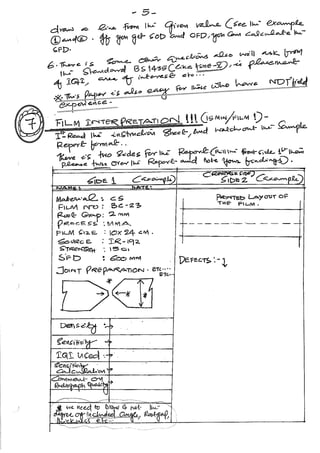 - 5 -
draw a line from the given value (see the example
① and ②. If you get SOD and OFD, you can calculate the
SFD.
6. There is some other questions also will ask from
the Standard BS 1435 (Like Issue-2), i.e. placement
of IQI, area of interest etc...
* This paper is also easy for those who have NDT field
experience.
7
FILM INTERPRETATION !!! (15 MIN/FILM!) -
1st Read the instruction Sheet, and watchout the Sample
Report format..
There is two sides for the Report (finish front side 1st then
please turn over the Report and note your findings).
SIDE 1 (example)
NAME: DATE:
SIDE 2 (example)
Material : CS
FILM NO : BC-23
Root Gap : 2 mm
PROCESS : MMA
FILM SIZE : 10x24 cm.
SOURCE : IR-192
STRENGTH : 15 Ci
SFD : 600 mm
JOINT PREPARATION. ETC...
ETC...
PRINTED LAYOUT OF
THE FILM.
DEFECTS :-
Density :→
Sensitivity →
IQI Used →
Sensitivity
Calculation →
Comment on
Radiograph Quality
* We need to Draw & not the
degree of included Angle, Rootgap,
thickness etc.